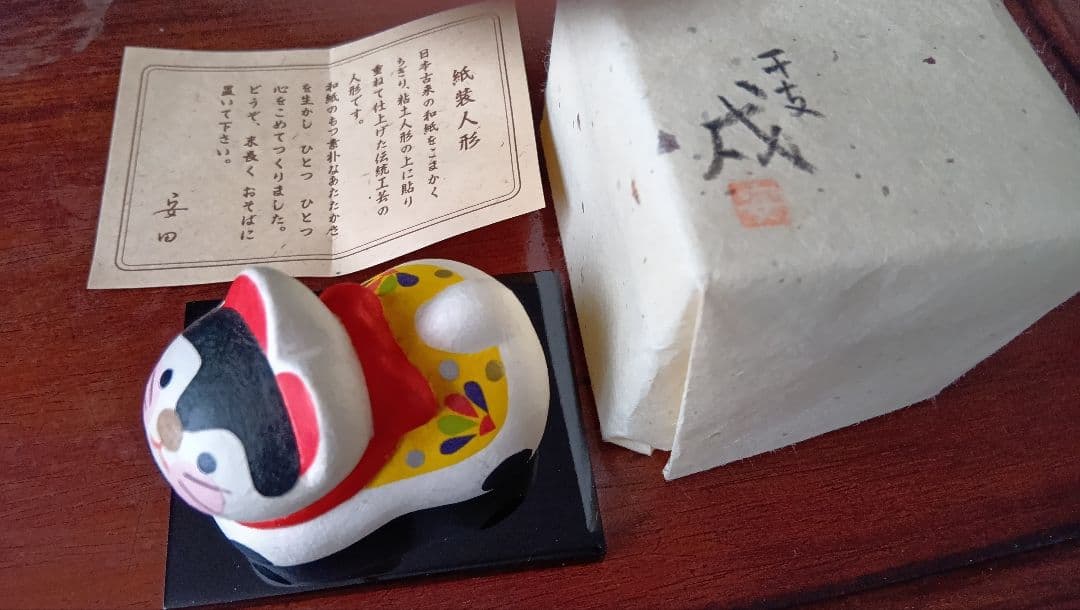 紙装人形
日本古来の和紙をこまかく
ちぎり、粘土人形の上に貼り
重ねて仕上げた伝統工芸の
人形です。
和紙のもつ素朴なあたたかさ
を生かし ひとつ ひとつ
心をこめてつくりました。
どうぞ、末長く おそばに
置いて下さい。
安田
干支
戌